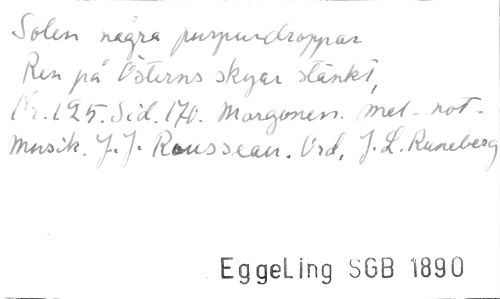 Solen några purpurdroppar
Ren på Österns skyar stänkt,
Nr. 125. Sid. 170. Morgonen. mel- not-
Musik. J. J. Rousseau. Ord, J. L. Runeberg
EggeLing SGB 1890